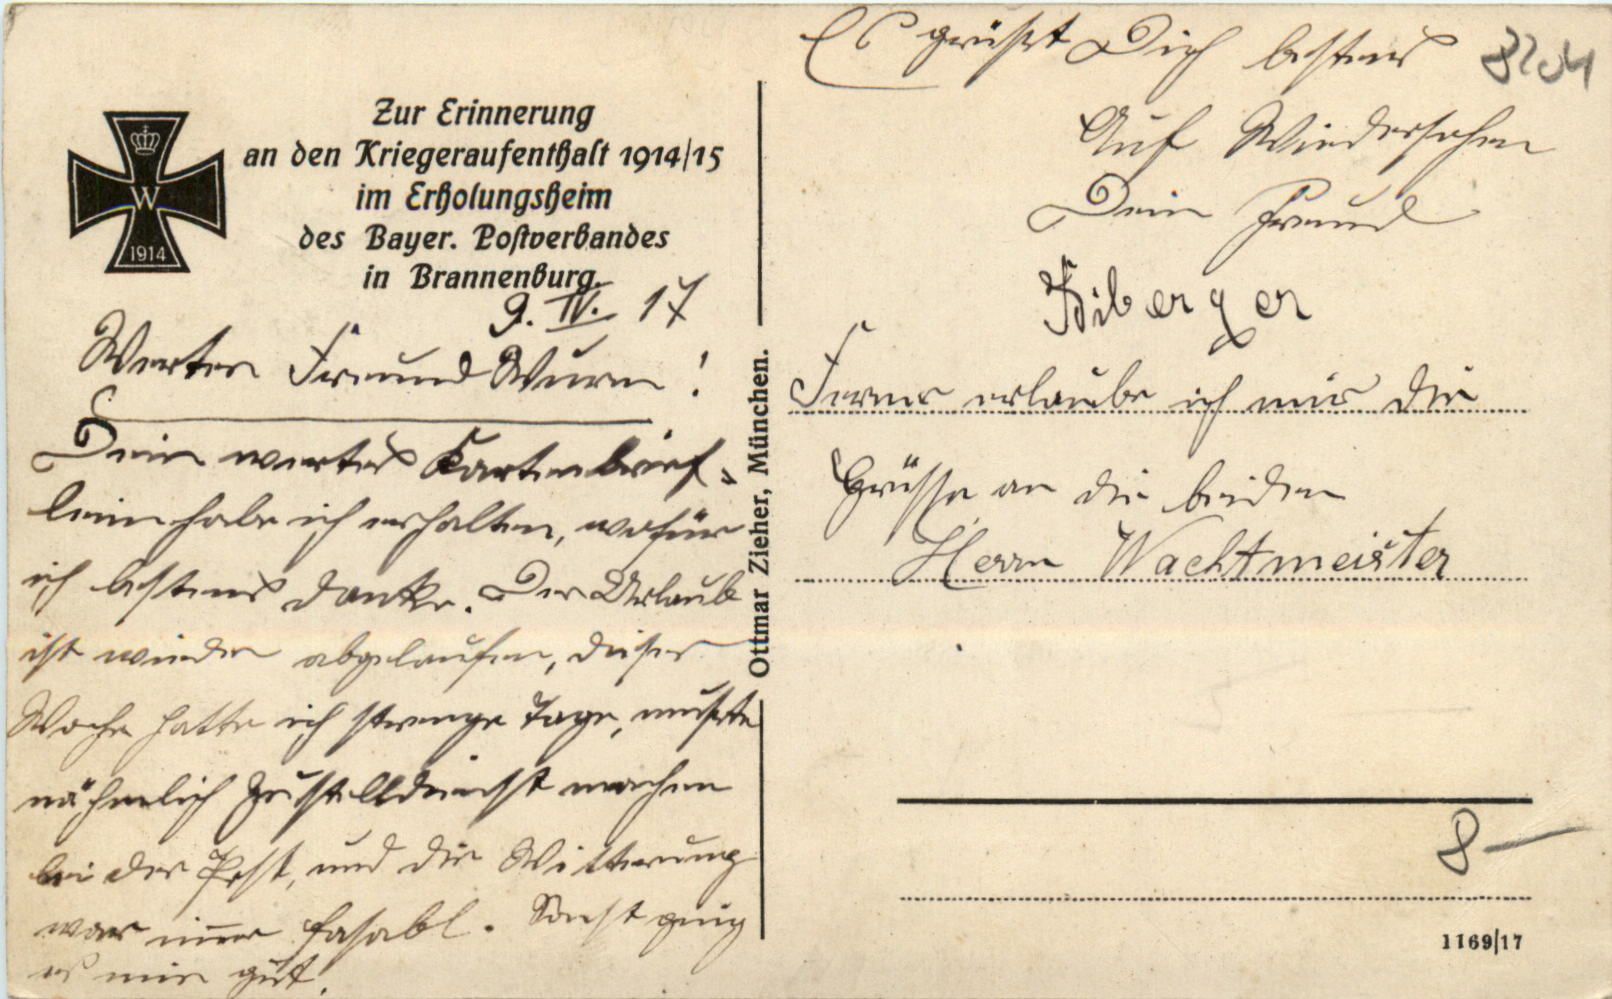 Zur Erinnerung
an den Kriegeraufenthalt 1914/15
im Erholungsheim
des Bayer. Postverbandes
in Brannenburg.
W
1914
9. IV. 17
Werter Freund Wurm!
Dein wertes Kartenbrief-
lein habe ich erhalten, wofür
ich bestens danke. Der Urlaub
ist wieder abgelaufen, dieser
Woche hatte ich strenge Tage, mußte
nähmlich Zustelldienst machen
bei der Post, und die Witterung
war immer . Sonst ging
es mir gut.
Ottmar Zieher, München.
Es grüßt Dich bestens
Auf Wiedersehen
Dein Freund
Biberger
Ferner erlaube ich mir die
Grüsse an die beiden
Herrn Wachtmeister
8204
8-
1169/17